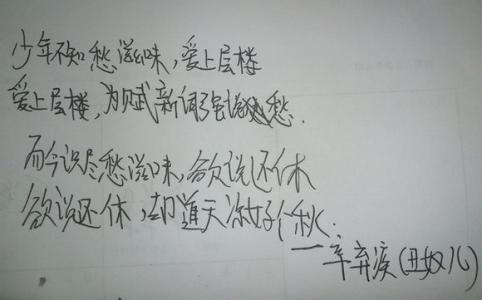 少年不知愁滋味,爱上层楼
爱上层楼,为赋新词强说愁.
而今识尽愁滋味,欲说还休
欲说还休,却道天凉好个秋.
—辛弃疾(丑奴儿)